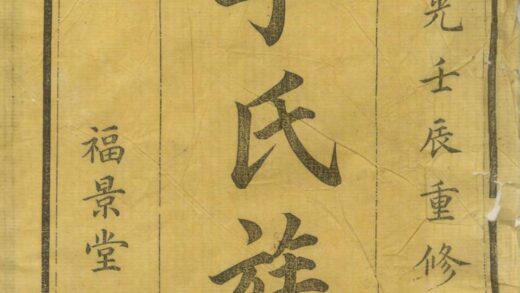 光壬辰重修
氏族
福景堂